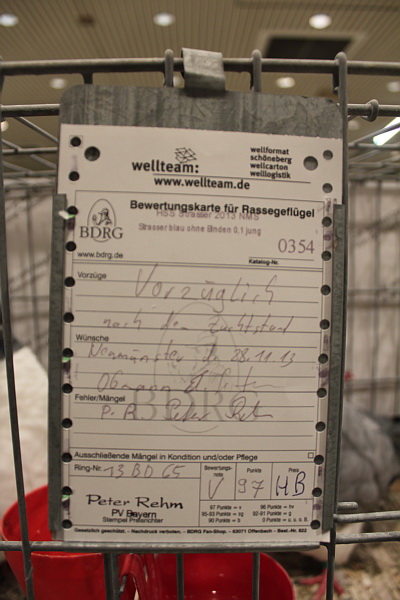 wellteam:
wellformat
schöneberg
wellcarton
welllogistik
www.wellteam.de
BDRG
www.bdrg.de
Bewertungskarte für Rassegeflügel
HSS Strasser 2013 NMS
Strasser blau ohne Binden 0,1 jung
0354
Katalog-Nr.
Vorzüge
Vorzüglich
nach dem Zuchtstand
Wünsche
Neumünster, den 28.11.13
Obmann
Fehler/Mängel
P. R. Peter Rehm
BDRG
Ausschließende Mängel in Kondition und/oder Pflege
Ring-Nr. 13 BD 65
Bewertungsnote
V
Punkte
97
Preis
HB
Peter Rehm
PV Bayern
Stempel Preisrichter
97 Punkte = v
96 Punkte = hv
95-93 Punkte = sg
92-91 Punkte = g
90 Punkte = b
0 Punkte = o. u. o. B.
Gesetzlich geschützt. - Nachdruck verboten. - BDRG Fan-Shop. - 63071 Offenbach - Best.-Nr. 922